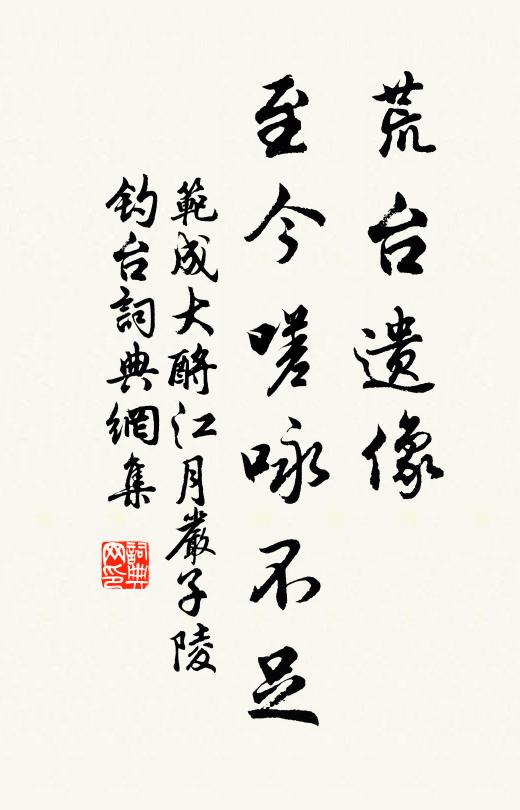 荒台遗像
至今嗟咏不足
範成大酹江月嚴子陵
钓台詞典網集
詞典网印